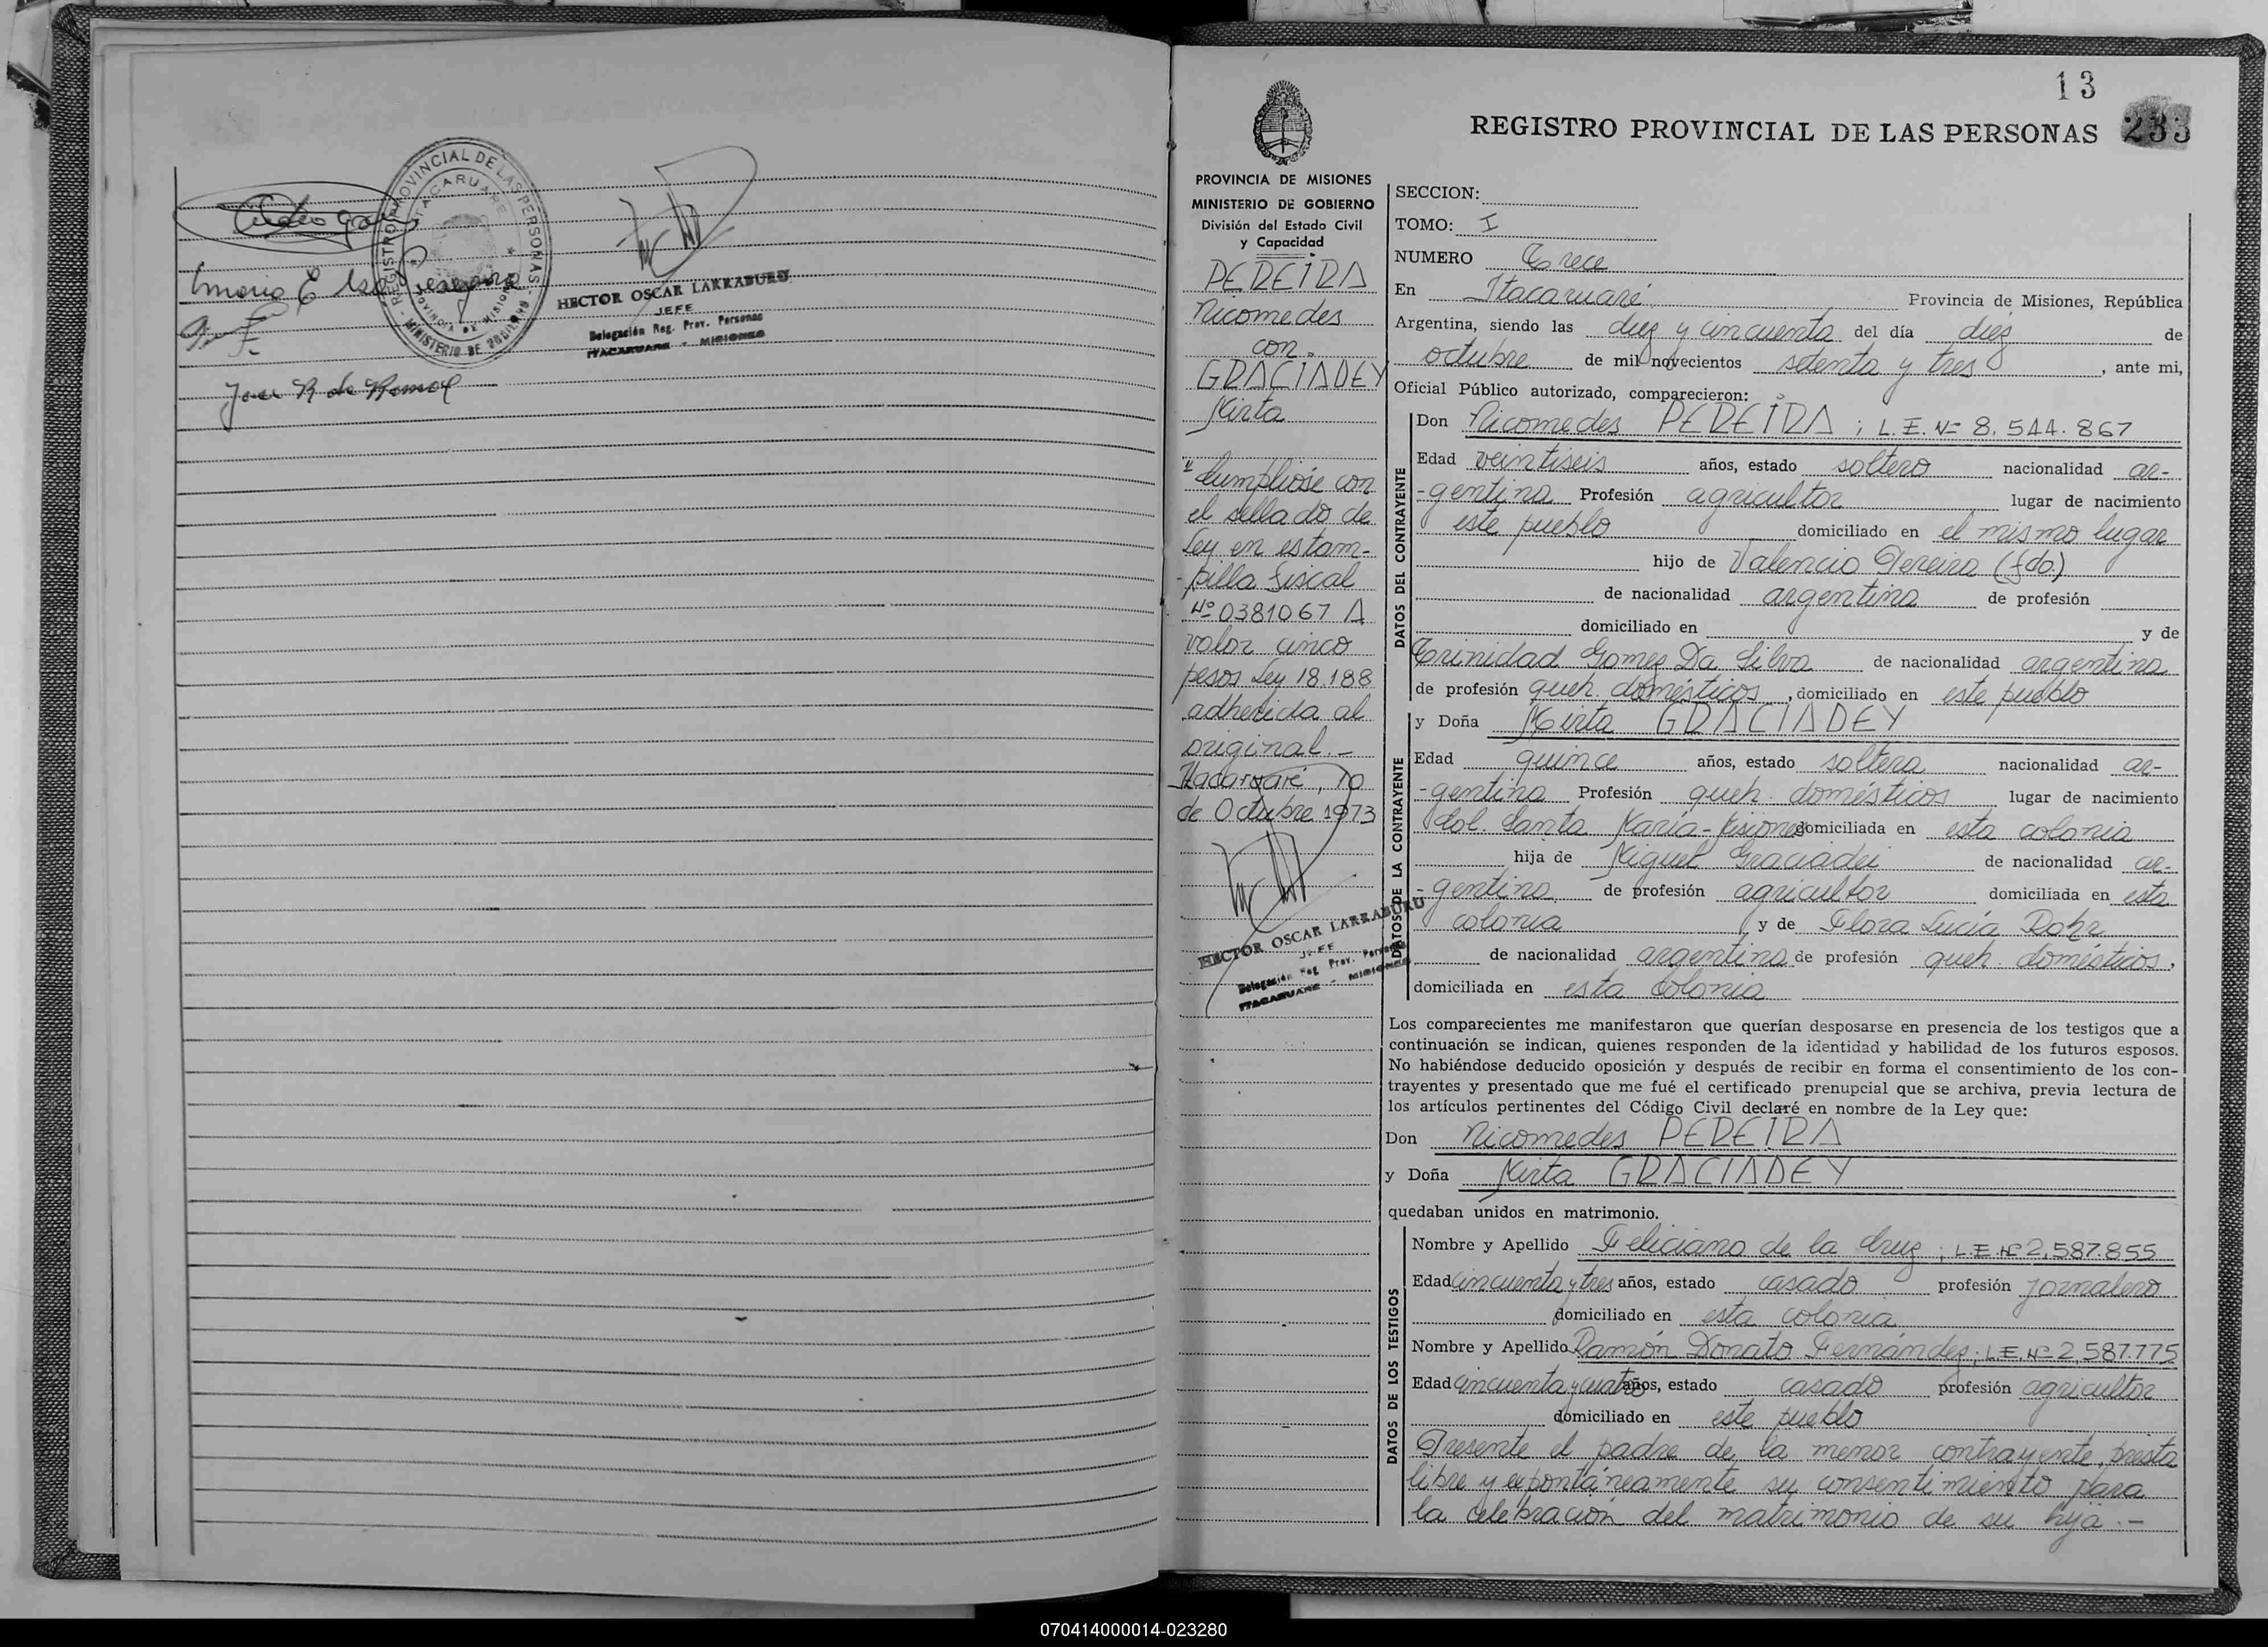 REGISTRO PROVINCIAL DE LAS PERSONAS
ITACARUARE
PROVINCIA DE MISIONES
MINISTERIO DE GOBIERNO
HECTOR OSCAR LARRABURU
JEFE
Delegación Reg. Prov. Personas
ITACARUARE - MISIONES
13
REGISTRO PROVINCIAL DE LAS PERSONAS 233
PROVINCIA DE MISIONES
MINISTERIO DE GOBIERNO
División del Estado Civil
y Capacidad
PEREIRA
Nicomedes
con
GRACIADEY
Mirta
"Cumplióse con
el sellado de
Ley en estam-
-pilla fiscal
Nº 0381067 A
valor cinco
pesos Ley 18.188
adherida al
original.-
Itacaruaré, 10
de Octubre 1973
HECTOR OSCAR LARRABURU
JEFE
Delegación Reg. Prov. Personas
ITACARUARE - MISIONES
SECCION:
TOMO: I
NUMERO Trece
En Itacaruaré Provincia de Misiones, República
Argentina, siendo las diez y cincuenta del día diez de
octubre de mil novecientos setenta y tres, ante mi,
Oficial Público autorizado, comparecieron:
DATOS DEL CONTRAYENTE
Don Nicomedes PEREIRA; L.E. Nº 8.544.867
Edad veintiseis años, estado soltero nacionalidad ar-
-gentina Profesión agricultor lugar de nacimiento
este pueblo domiciliado en el mismo lugar
hijo de Valencio Pereira (fdo.)
de nacionalidad argentina de profesión
domiciliado en y de
Trinidad Gomez Da Silva de nacionalidad argentina
de profesión queh. domésticos, domiciliado en este pueblo
DATOS DE LA CONTRAYENTE
y Doña Mirta GRACIADEY
Edad quince años, estado soltera nacionalidad ar-
-gentina Profesión queh. domésticos lugar de nacimiento
Col. Santa María-Misiones domiciliada en esta colonia
hija de Miguel Graciadei de nacionalidad ar-
-gentina de profesión agricultor domiciliada en esta
colonia y de Flora Lucía Dohr
de nacionalidad argentina de profesión queh. domésticos,
domiciliada en esta Colonia
Los comparecientes me manifestaron que querían desposarse en presencia de los testigos que a
continuación se indican, quienes responden de la identidad y habilidad de los futuros esposos.
No habiéndose deducido oposición y después de recibir en forma el consentimiento de los con-
trayentes y presentado que me fué el certificado prenupcial que se archiva, previa lectura de
los artículos pertinentes del Código Civil declaré en nombre de la Ley que:
Don Nicomedes PEREIRA
y Doña Mirta GRACIADEY
quedaban unidos en matrimonio.
DATOS DE LOS TESTIGOS
Nombre y Apellido Feliciano de la Cruz; L.E. Nº 2.587.855
Edad cincuenta y tres años, estado casado profesión jornalero
domiciliado en esta colonia
Nombre y Apellido Ramón Donato Fernández; L.E. Nº 2.587.775
Edad cincuenta y cuatro años, estado casado profesión agricultor
domiciliado en este pueblo
Presente el padre de la menor contrayente, presta
libre y expontáneamente su consentimiento para
la celebración del matrimonio de su hija.-
070414000014-023280